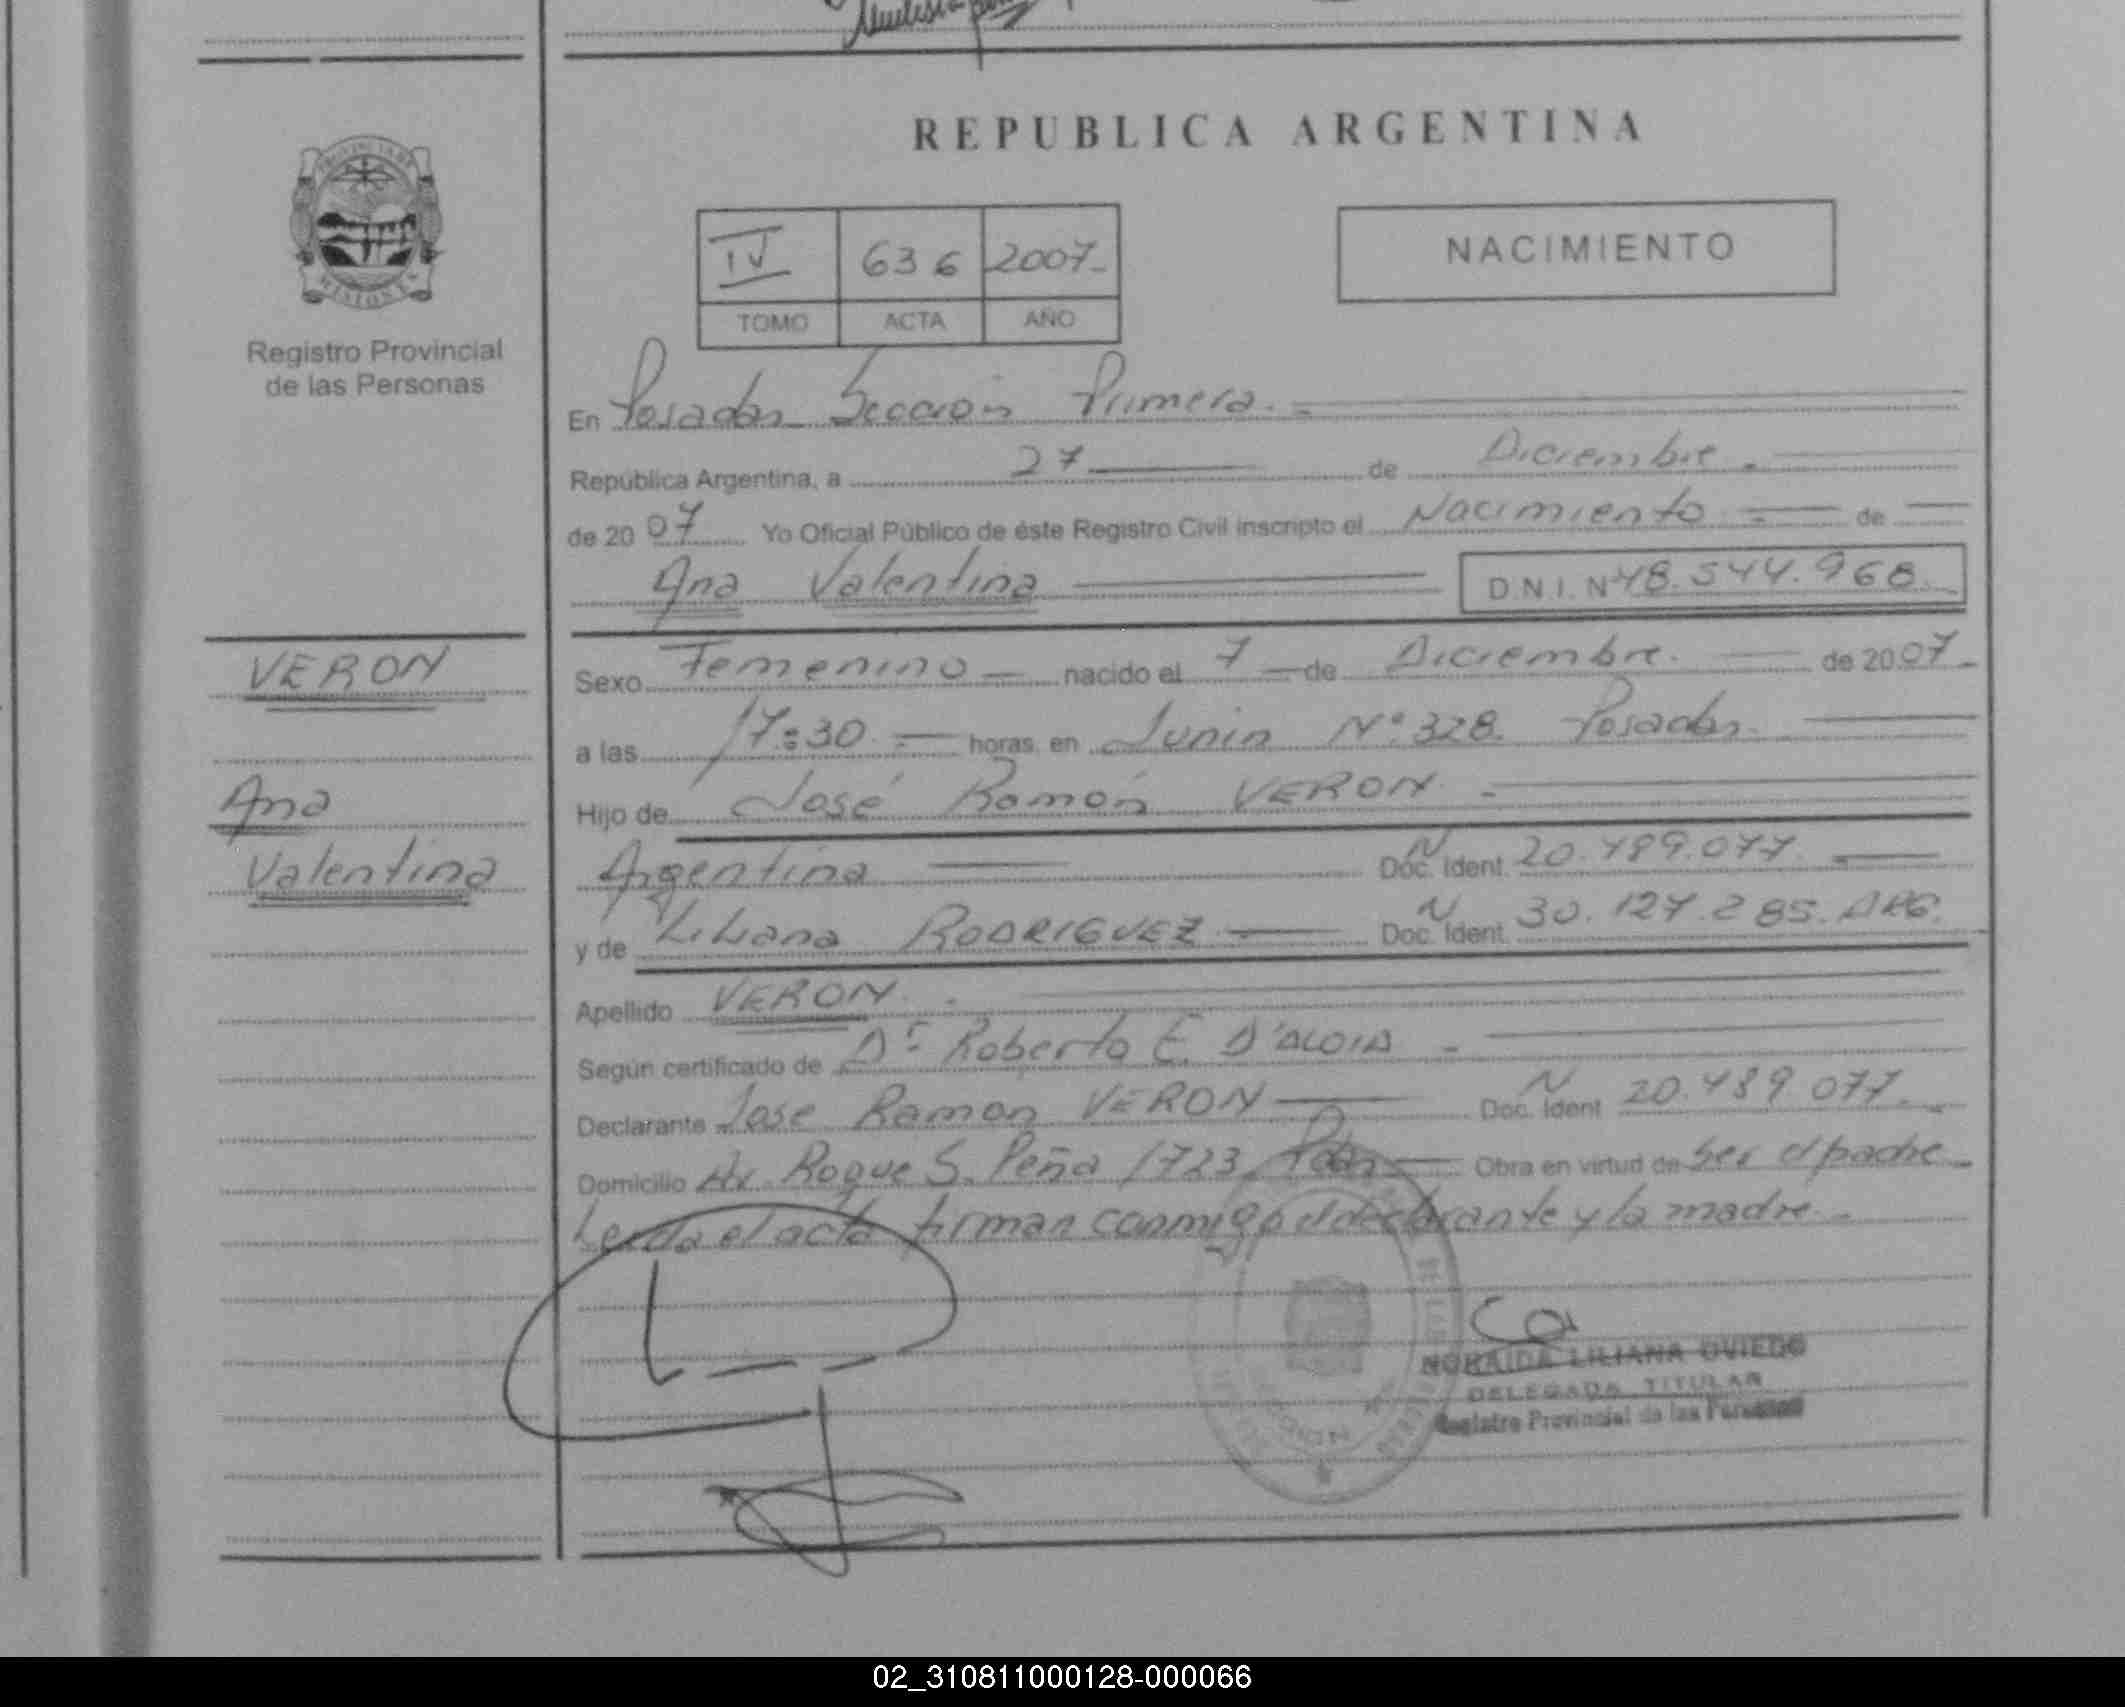 REPUBLICA ARGENTINA
PROVINCIA DE
MISIONES
Registro Provincial
de las Personas
IV 636 2007-
TOMO ACTA AÑO
NACIMIENTO
En Posadas Sección Primera.-
República Argentina, a 27 de Diciembre.
de 2007 Yo Oficial Público de éste Registro Civil inscripto el Nacimiento de
Ana Valentina D.N.I. Nº 48.544.968.
VERON
Ana
Valentina
Sexo Femenino nacido el 7 de Diciembre. de 2007-
a las 17:30 horas, en Junin Nº 328. Posadas.
Hijo de José Ramón VERON.-
Argentina Doc. N Ident. 20.489.077.
y de Liliana RODRIGUEZ Doc. N Ident. 30.127.285. ARG.
Apellido VERON.
Según certificado de Dr. Roberto E. D'ALOIA -
Declarante Jose Ramon VERON Doc. N Ident. 20.489.077.
Domicilio Av. Roque S. Peña 1723, Pdas Obra en virtud de ser el padre
Leida el acta firman conmigo el declarante y la madre.
NORAIDA LILIANA OVIEDO
DELEGADA TITULAR
Registro Provincial de las Personas
02_310811000128-000066